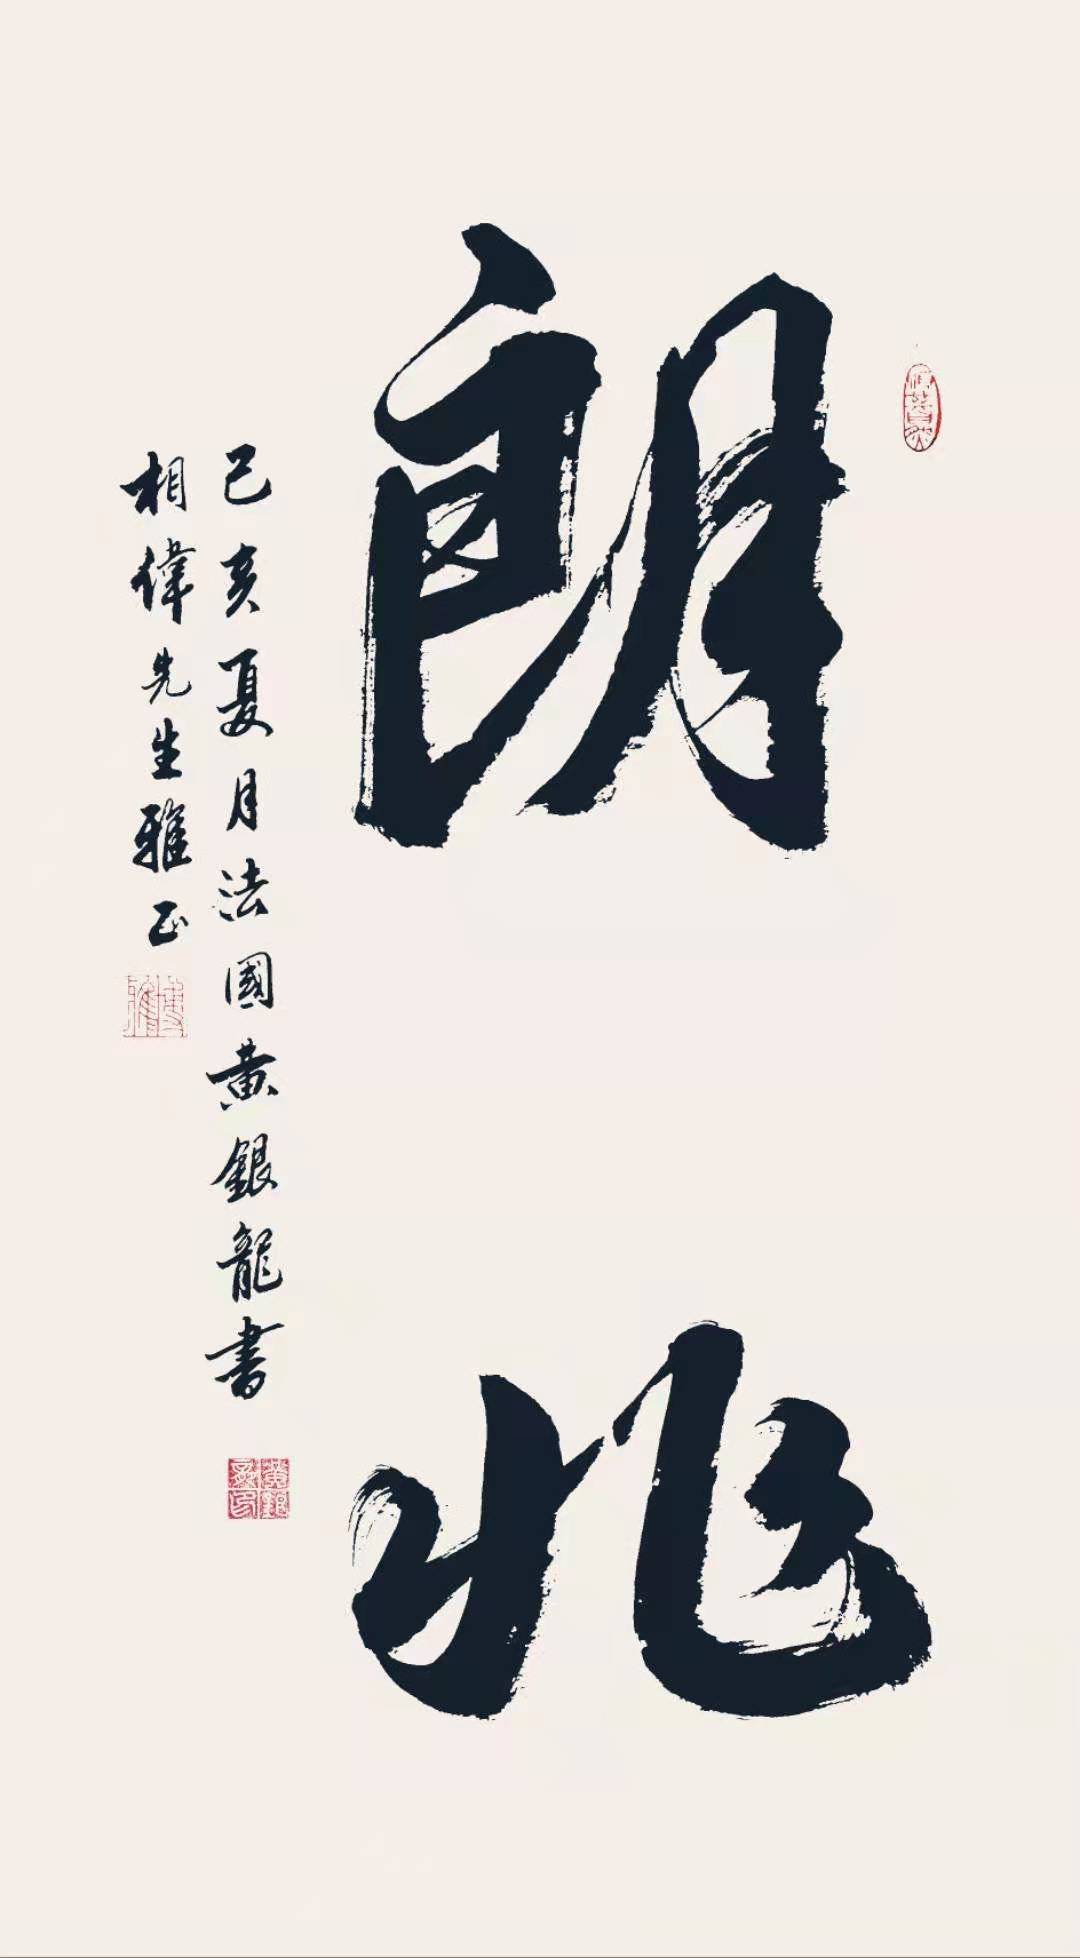 朗兆
己亥夏月法國黄銀龍書
相偉先生雅正